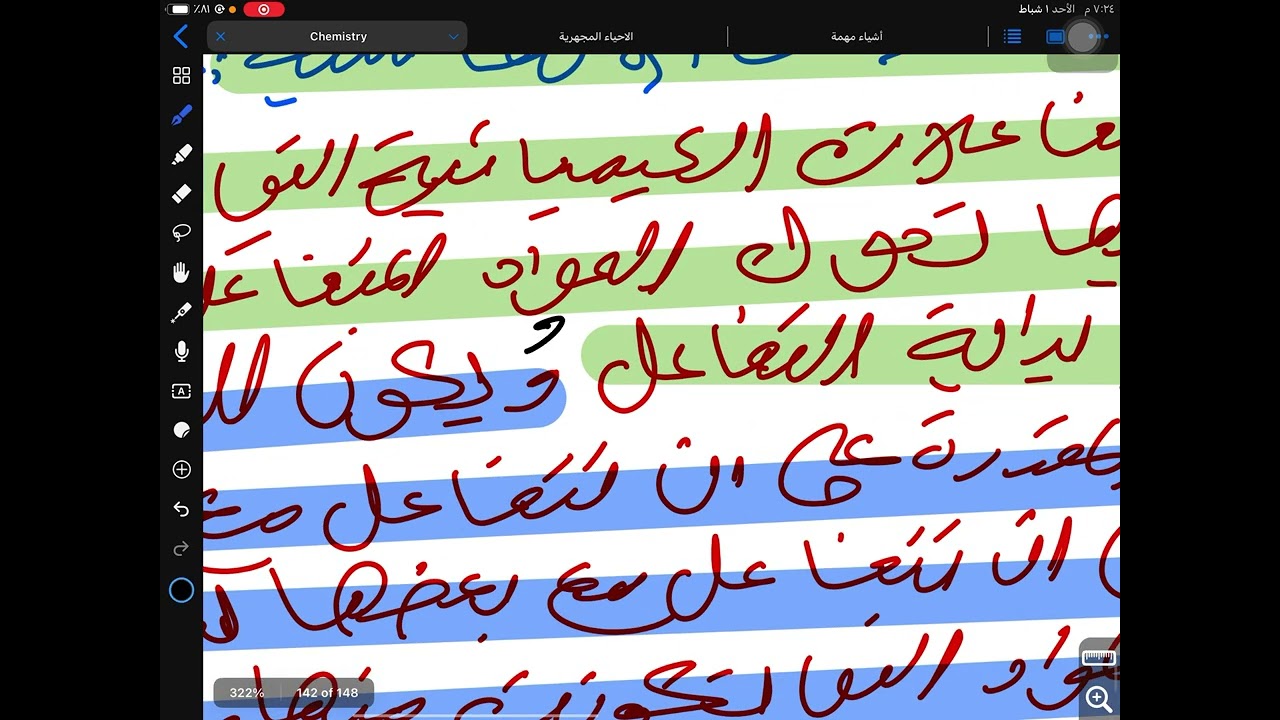 ٧:٣٤ م الأحد ١ شباط
٪٨١
Chemistry
الاحياء المجهرية
أشياء مهمة
التفاعلات الكيميائية التي
فيها تحول المواد المتفاعلة
بداية التفاعل ويكون لل
المقدرة على ان تتفاعل مع
ان تتفاعل مع بعضها
المواد التي تكونت منها
322%
142 of 148